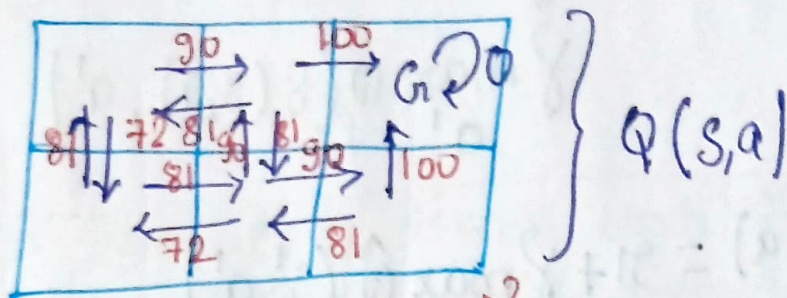 90 100
G 0
81 72 81 90 81 90 100 Q(S,a)
81
72 81